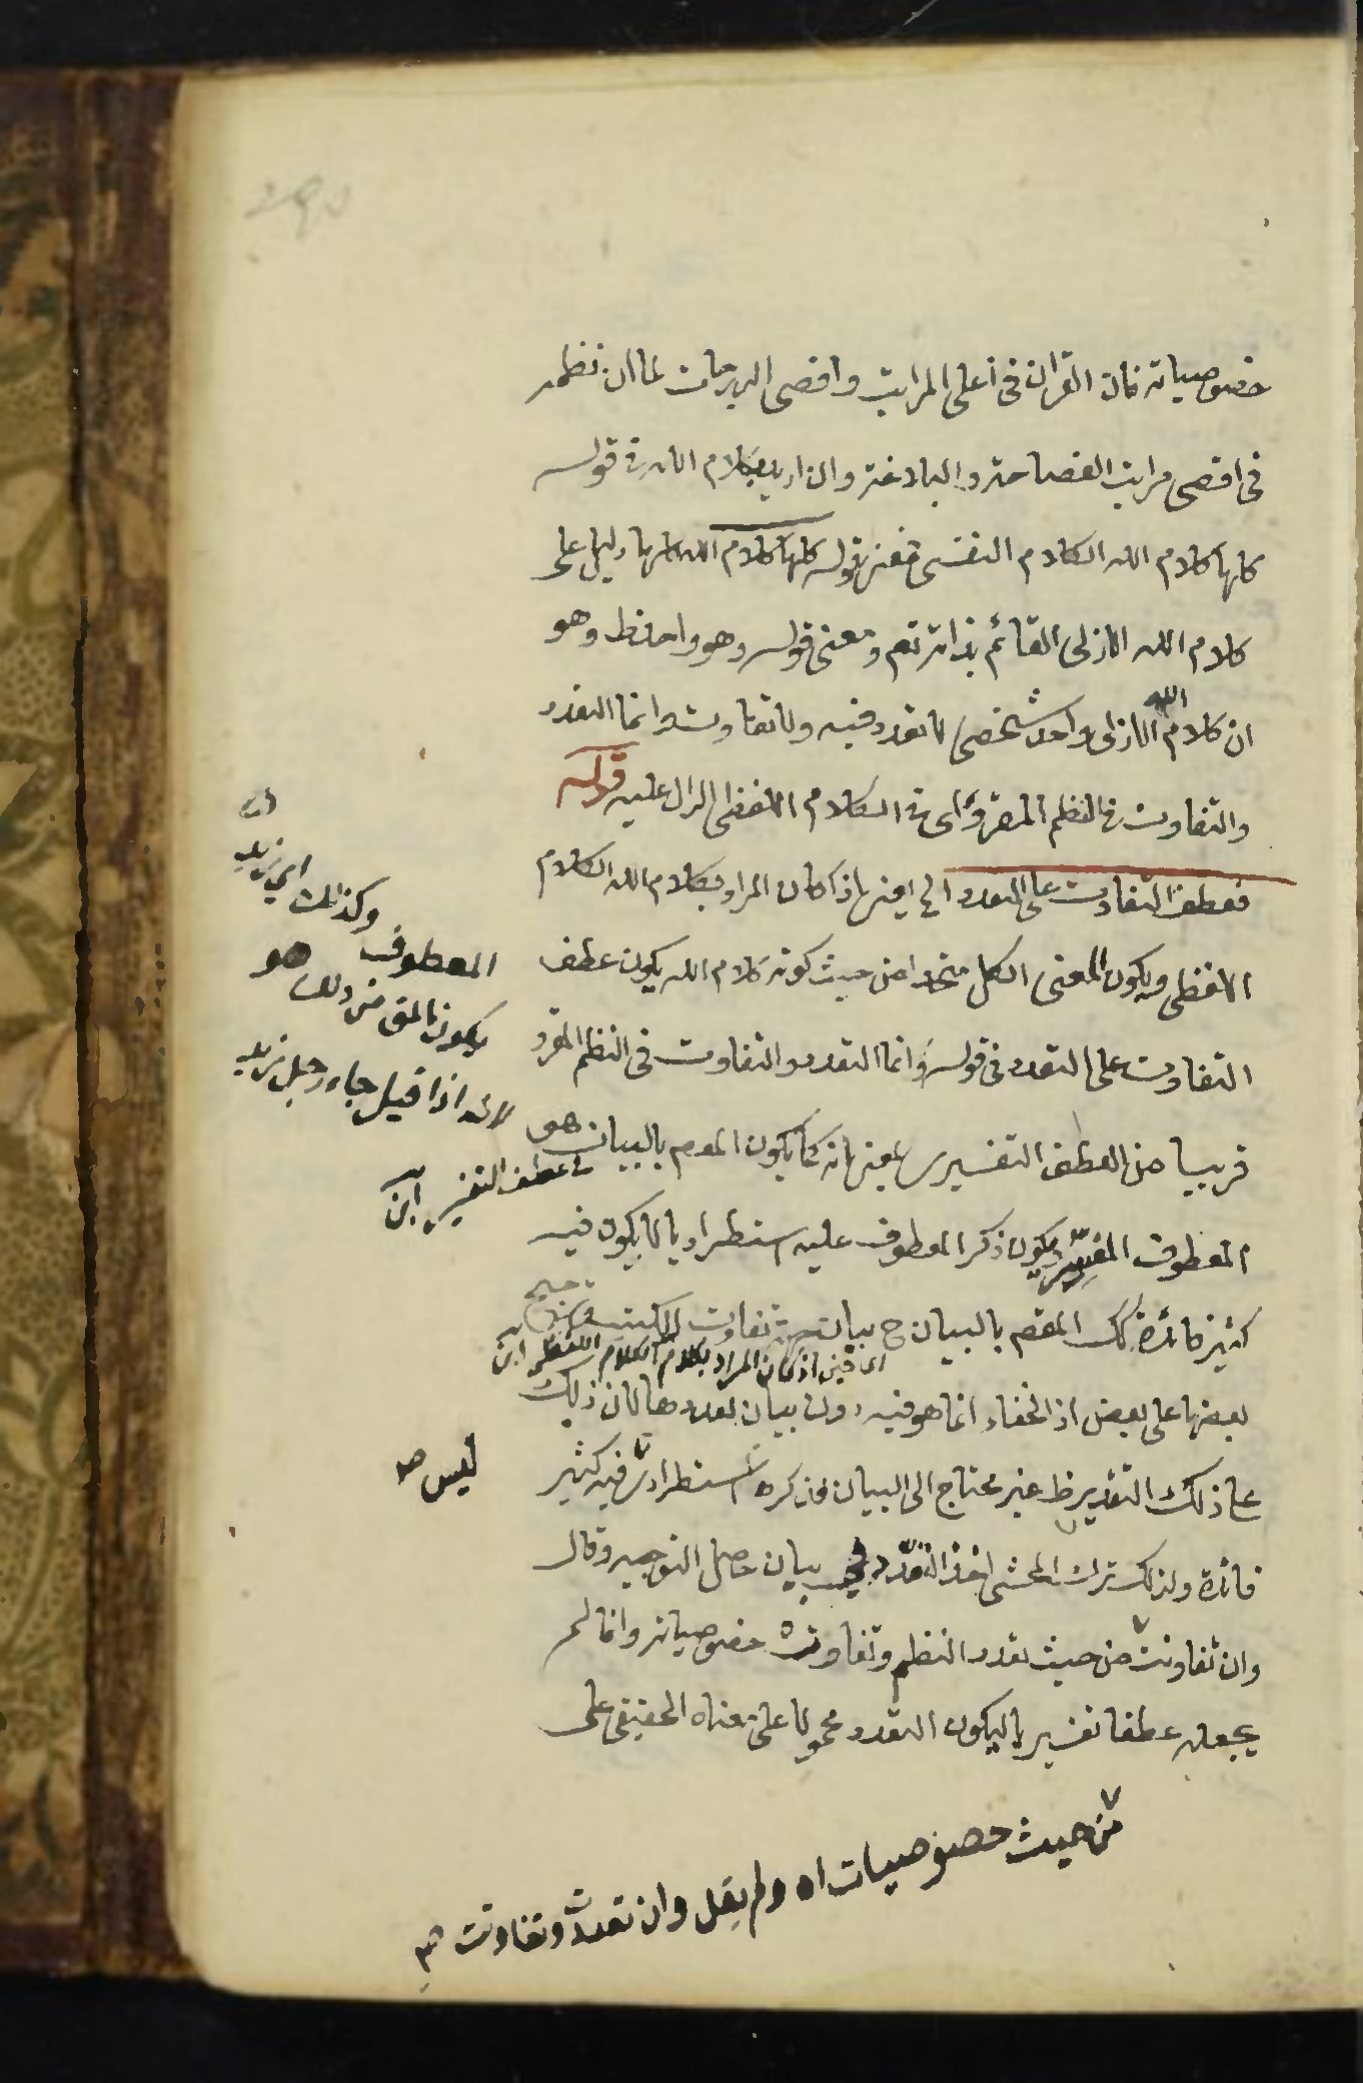 خصوصياته فان القران فى أعلى المراتب واقصى الدرجات لما ان نظمه
فى اقصى مراتب الفصاحة والبلاغة وان اريد بكلام الله فى قوله
كلها كلام الله الكلام النفسى فمعنى قوله كلها كلام الله كلها دليل على
كلام الله الازلى القائم بذاته تعم ومعنى قوله وهو واحد فظ وهو
ان كلام الله الازلى واحد شخصى لا تعدد فيه ولا تفاوت وانما التعدد
والتفاوت فى النظم المقروء اى فى الكلام اللفظى الدال عليه قوله
فعطف التفاوت على التعدد الخ يعنى اذا كان المراد بكلام الله الكلام
اللفظى ويكون المعنى الكل متحد من حيث كونه كلام الله يكون عطف
التفاوت على التعدد فى قوله وانما التعدد والتفاوت فى النظم المقرو
قريبا من العطف التفسيرى يعنى انه كما يكون المقصم بالبيان هو
فى عطف التفسير
المعطوف المفسِّر ويكون ذكر المعطوف عليه استطراديا لا يكون فيه
كثير فائدة كك المقصم بالبيان ح بيان جهة تفاوت الكتب وترجيح
اى حين اذ كان المراد بكلام الكلام اللفظى
بعضها على بعض اذ الخفاء انما هو فيه دون بيان تعددها لان ذلك
على ذلك التقدير ظ غير محتاج الى البيان فذكره استطرادى فيه كثير
ليس صح
فائدة ولذلك ترك المحشى اخذ التعدد فى بيان حاصل التوجيه وقال
وان تفاوتت من حيث تعدد النظم وتفاوت خصوصياته وانما لم
يجعله عطفا تفسيريا ليكون التعدد محمولا على معناه الحقيقى على
وكذلك اى يزيد
المعطوف
يكون المق من ذلك هو
لانه اذا قيل جاء رجل زيد
من حيث خصوصيات اه ولم يقل وان تعددت وتفاوتت